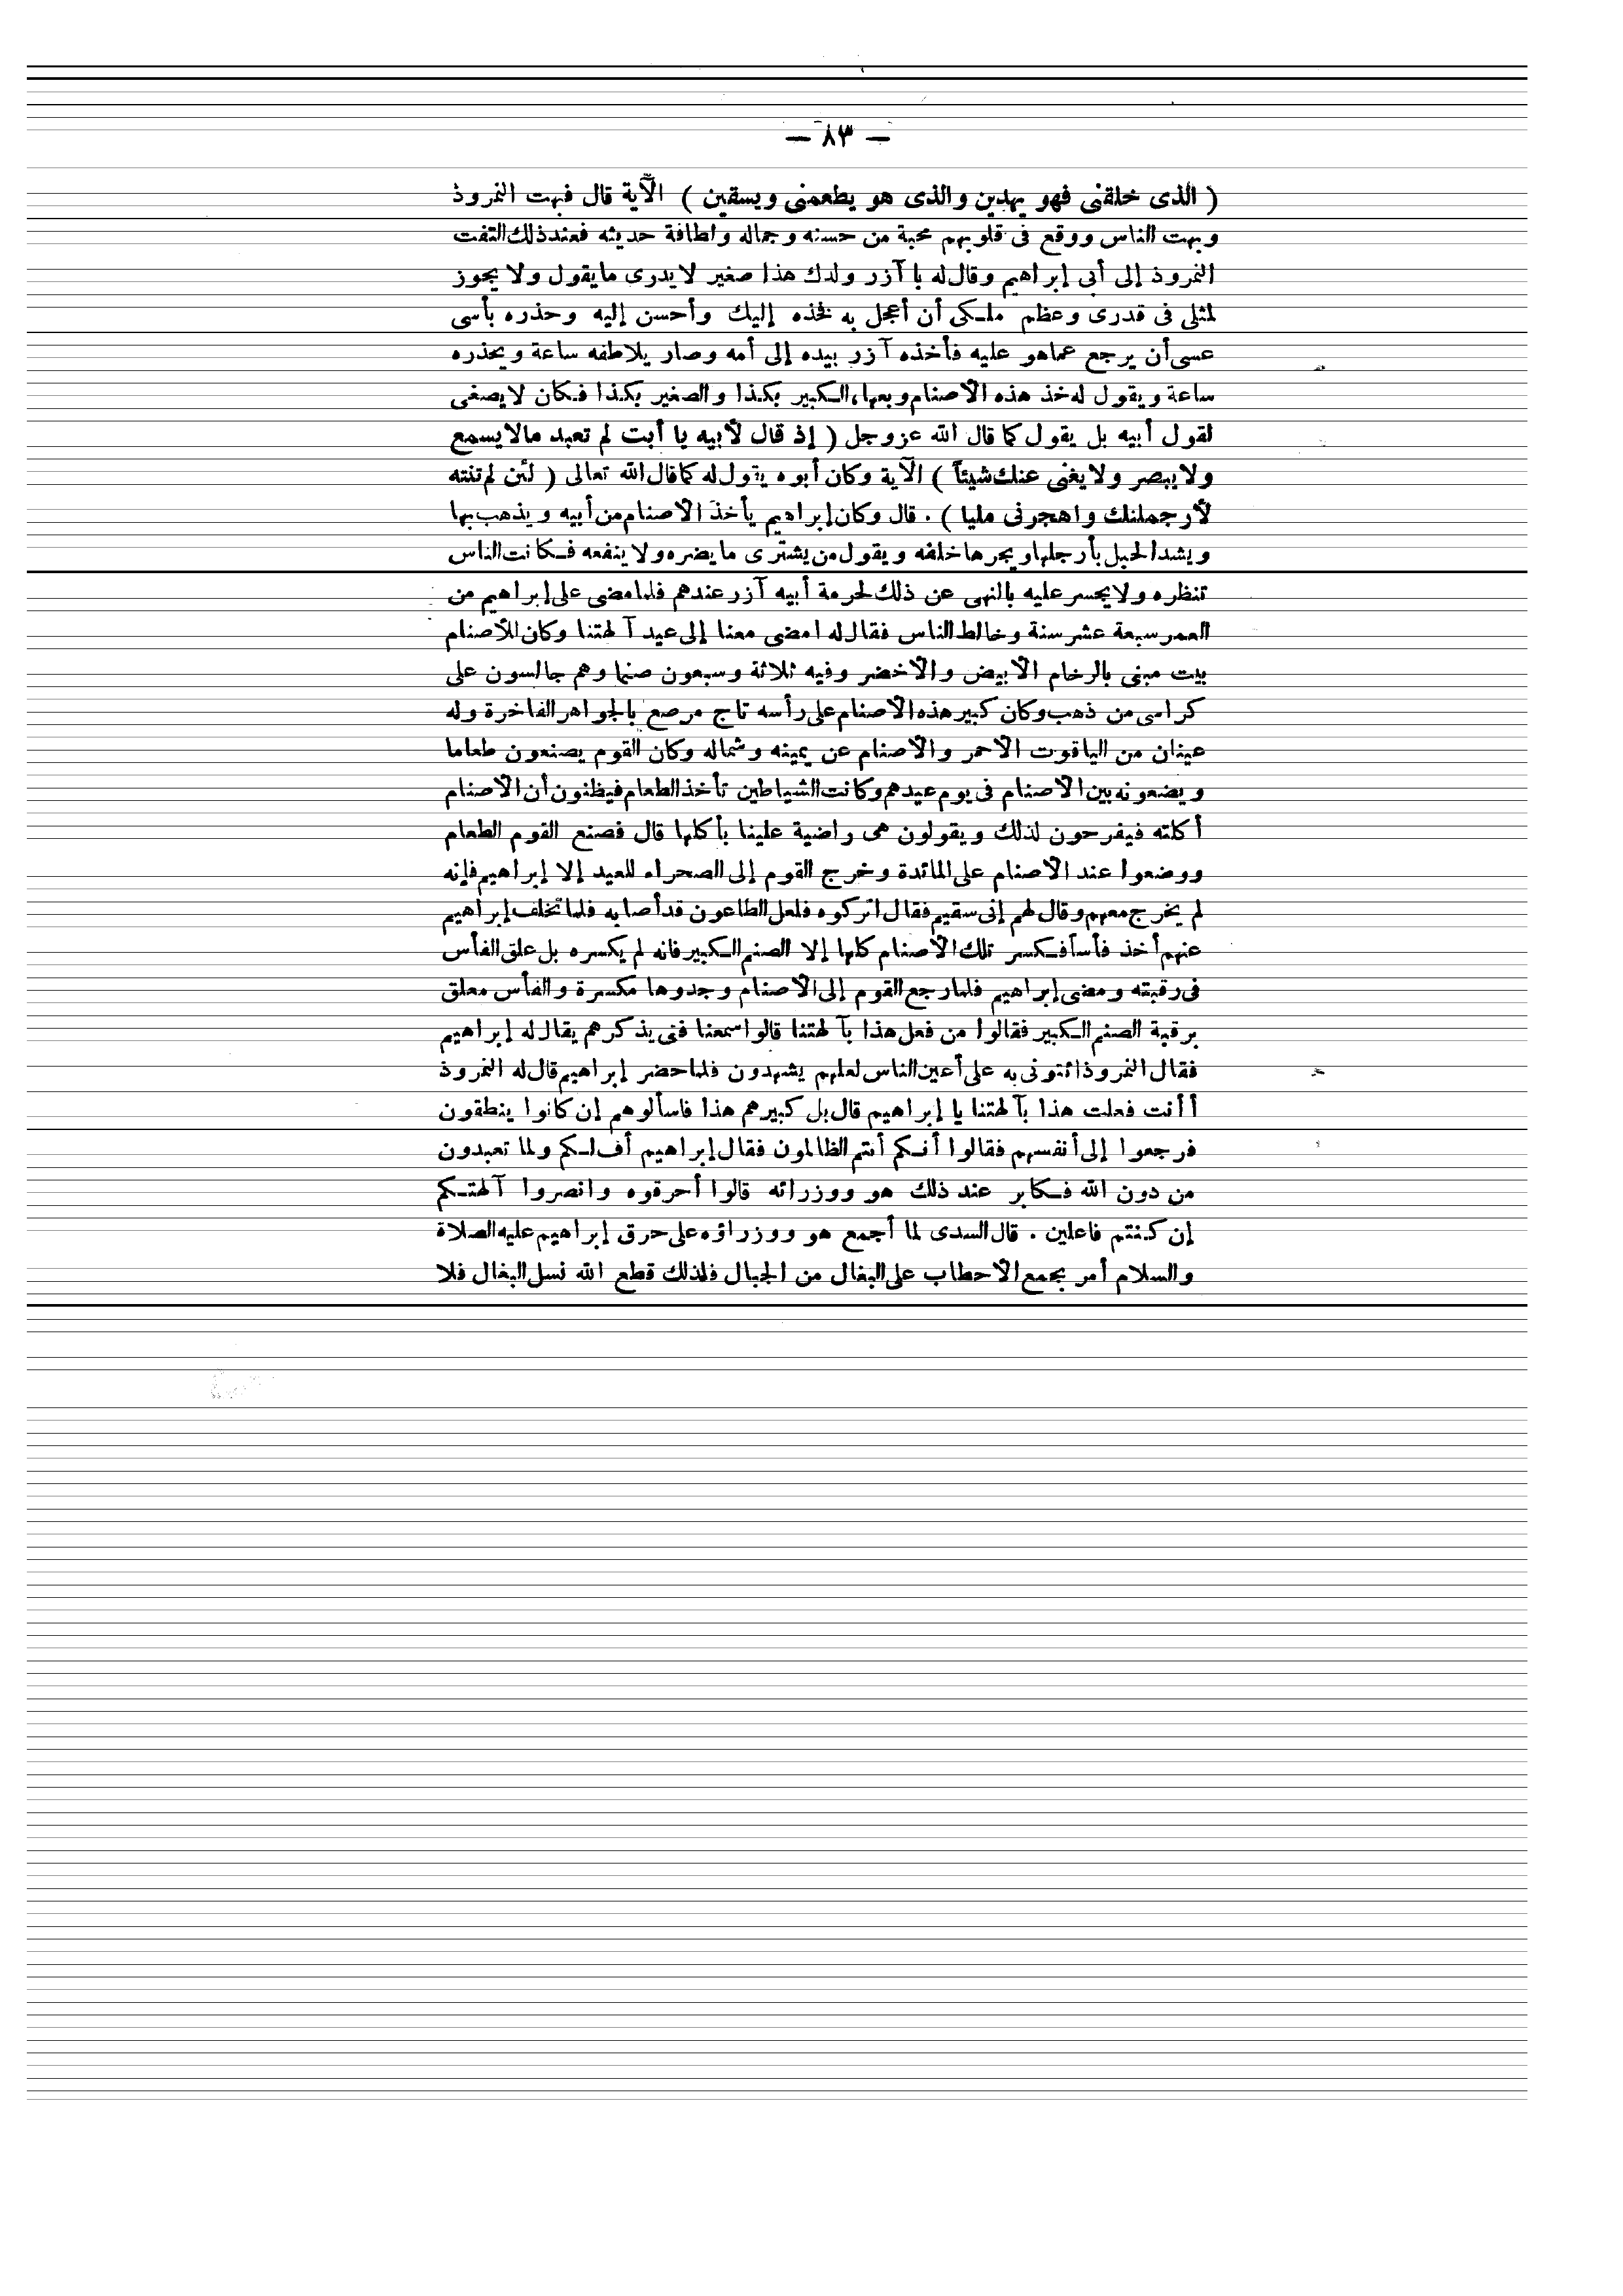 — ٨٣ —
( الذى خلقنى فهو يهدين والذى هو يطعمنى ويسقين ) الآية قال فبهت النمروذ
وبهت الناس ووقع فى قلوبهم محبة من حسنه وجماله ولطافة حديثه فعند ذلك التفت
النمروذ إلى أبى إبراهيم وقال له يا آزر ولدك هذا صغير لا يدرى ما يقول ولا يجوز
لمثلى فى قدرى وعظم ملكى أن أعجل به فخذه إليك وأحسن إليه وحذره بأسى
عسى أن يرجع عما هو عليه فأخذه آزر بيده إلى أمه وصار يلاطفه ساعة ويحذره
ساعة ويقول له خذ هذه الأصنام وبعها، الكبير بكذا والصغير بكذا فكان لا يصغى
لقول أبيه بل يقول كما قال الله عز وجل ( إذ قال لأبيه يا أبت لم تعبد مالا يسمع
ولا يبصر ولا يغنى عنك شيئاً ) الآية وكان أبوه يقول له كما قال الله تعالى ( لئن لم تنته
لأرجمنك واهجرنى مليا ) . قال وكان إبراهيم يأخذ الأصنام من أبيه ويذهب بها
ويشد الحبل بأرجلها ويجرها خلفه ويقول من يشترى ما يضره ولا ينفعه فكانت الناس
تنظره ولا يجسر عليه بالنهى عن ذلك لحرمة أبيه آزر عندهم فلما مضى على إبراهيم من
العمر سبعة عشر سنة وخالط الناس فقال له امضى معنا إلى عيد آلهتنا وكان للأصنام
بيت مبنى بالرخام الأبيض والأخضر وفيه ثلاثة وسبعون صنما وهم جالسون على
كراسى من ذهب وكان كبير هذه الأصنام على رأسه تاج مرصع بالجواهر الفاخرة وله
عينان من الياقوت الأحمر والأصنام عن يمينه وشماله وكان القوم يصنعون طعاما
ويضعونه بين الأصنام فى يوم عيدهم وكانت الشياطين تأخذ الطعام فيظنون أن الأصنام
أكلته فيفرحون لذلك ويقولون هى راضية علينا بأكلها قال فصنع القوم الطعام
ووضعوا عند الأصنام على المائدة وخرج القوم إلى الصحراء للعيد إلا إبراهيم فإنه
لم يخرج معهم وقال لهم إنى سقيم فقال اتركوه فلعل الطاعون قد أصابه فلما تخلف إبراهيم
عنهم أخذ فأساً فكسر تلك الأصنام كلها إلا الصنم الكبير فانه لم يكسره بل علق الفأس
فى رقبته ومضى إبراهيم فلما رجع القوم إلى الأصنام وجدوها مكسرة والفأس معلق
برقبة الصنم الكبير فقالوا من فعل هذا بآلهتنا قالوا سمعنا فتى يذكرهم يقال له إبراهيم
فقال النمروذ ائتونى به على أعين الناس لعلهم يشهدون فلما حضر إبراهيم قال له النمروذ
أأنت فعلت هذا بآلهتنا يا إبراهيم قال بل كبيرهم هذا فاسألوهم إن كانوا ينطقون
فرجعوا إلى أنفسهم فقالوا أنكم أنتم الظالمون فقال إبراهيم أف لكم ولما تعبدون
من دون الله فكابر عند ذلك هو ووزرائه قالوا أحرقوه وانصروا آلهتكم
إن كنتم فاعلين . قال السدى لما أجمع هو ووزراؤه على حرق إبراهيم عليه الصلاة
والسلام أمر بجمع الأحطاب على البغال من الجبال فلذلك قطع الله نسل البغال فلا